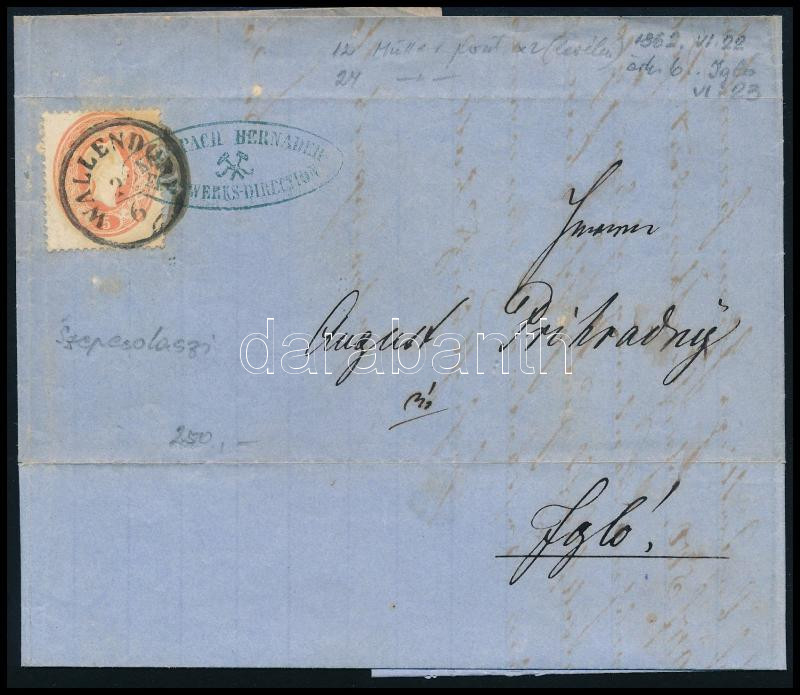 12 Müller pont
24 — " —
1862. VI. 22
Igló
VI. 23
WALLENDORF
22
6
PACH BERNADER
WERKS-DIRECTION
5
Herrn
August Prihradný
in
Igló!
Szepesolaszi
250,-
darabanth